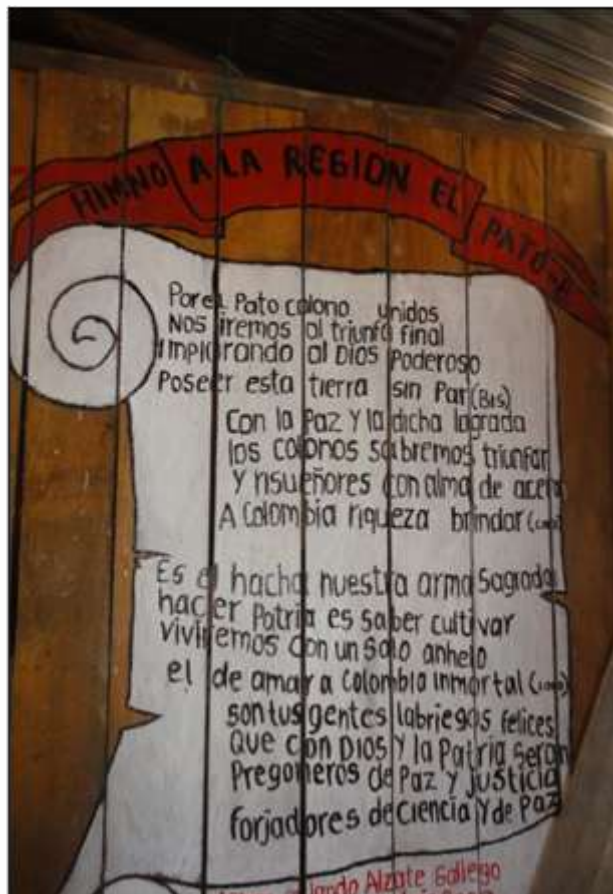 HIMNO A LA REGION EL PATO
Por el Pato colono unidos
Nos iremos al triunfo final
Implorando al Dios Poderoso
Poseer esta tierra sin Par (Bis)
Con la Paz y la dicha lograda
los colonos sabremos triunfar
y risueñores con alma de acero
A Colombia riqueza brindar
Es el hacha nuestra arma sagrada
hacer Patria es saber cultivar
viviremos con un solo anhelo
el de amar a Colombia inmortal
son tus gentes labriegos felices
Que con Dios y la Patria seran
Pregoneros de Paz y justicia
forjadores de ciencia y de Paz
Alzate Gallego